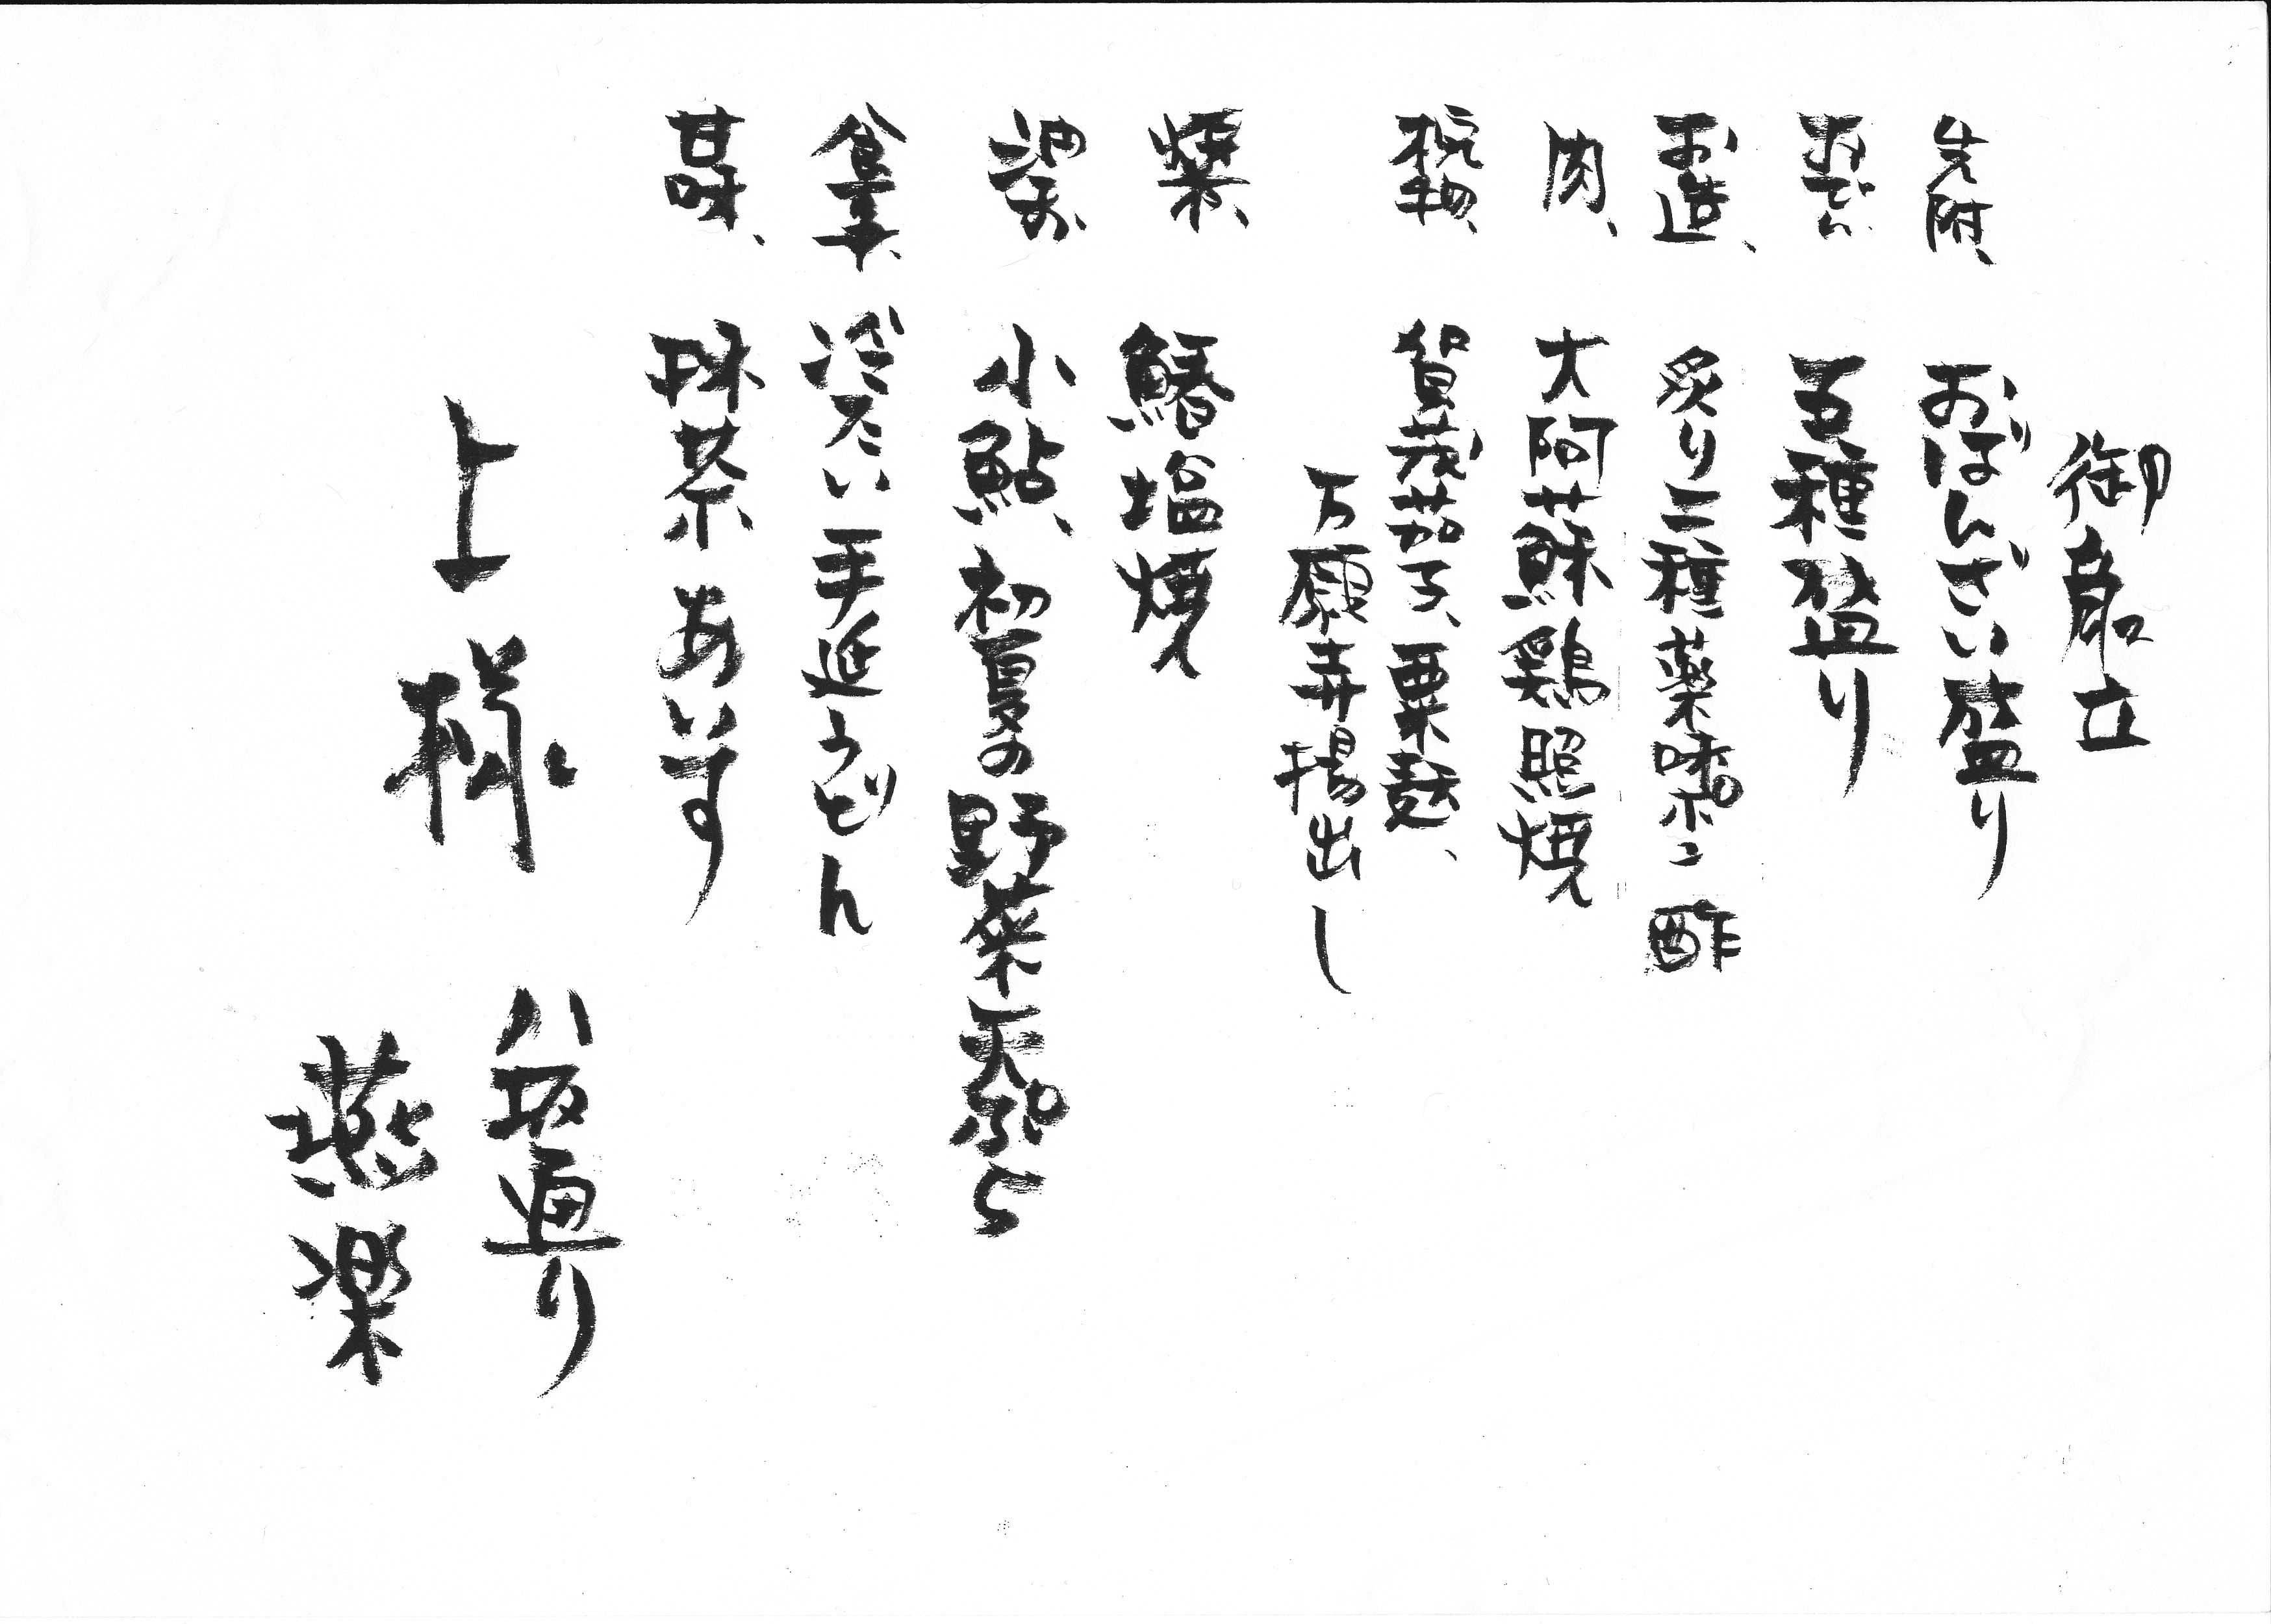 御献立
先附、おばんざい盛り
おでん 五種盛り
お造、炙り三種薬味ポン酢
肉、大阿蘇鶏照焼
椀物、賀茂茄子、粟麩、
万願寺揚出し
焼物、鰆塩焼
油物、小鮎、初夏の野菜天ぷら
食事、冷たい手延うどん
甘味、抹茶あいす
上様
八坂通り
燕楽